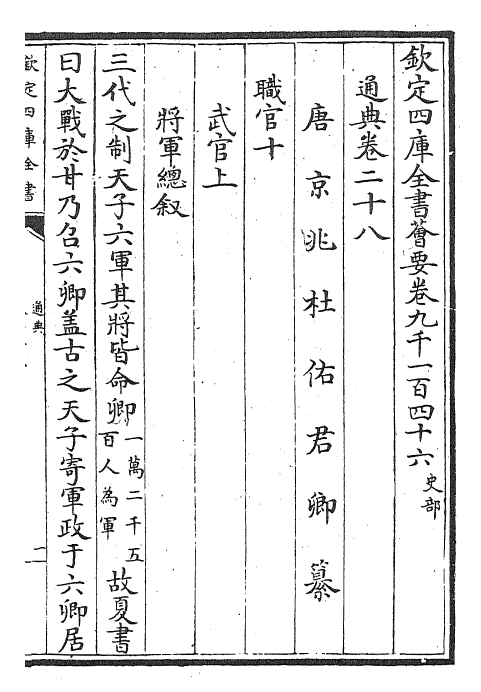 欽定四庫全書薈要卷九千一百四十六 史部
通典卷二十八
唐京兆杜佑君卿纂
職官十
武官上
將軍總叙
三代之制天子六軍其將皆命卿一萬二千五百人為軍故夏書
曰大戰於甘乃召六卿蓋古之天子寄軍政于六卿居
欽定四庫全書
通典